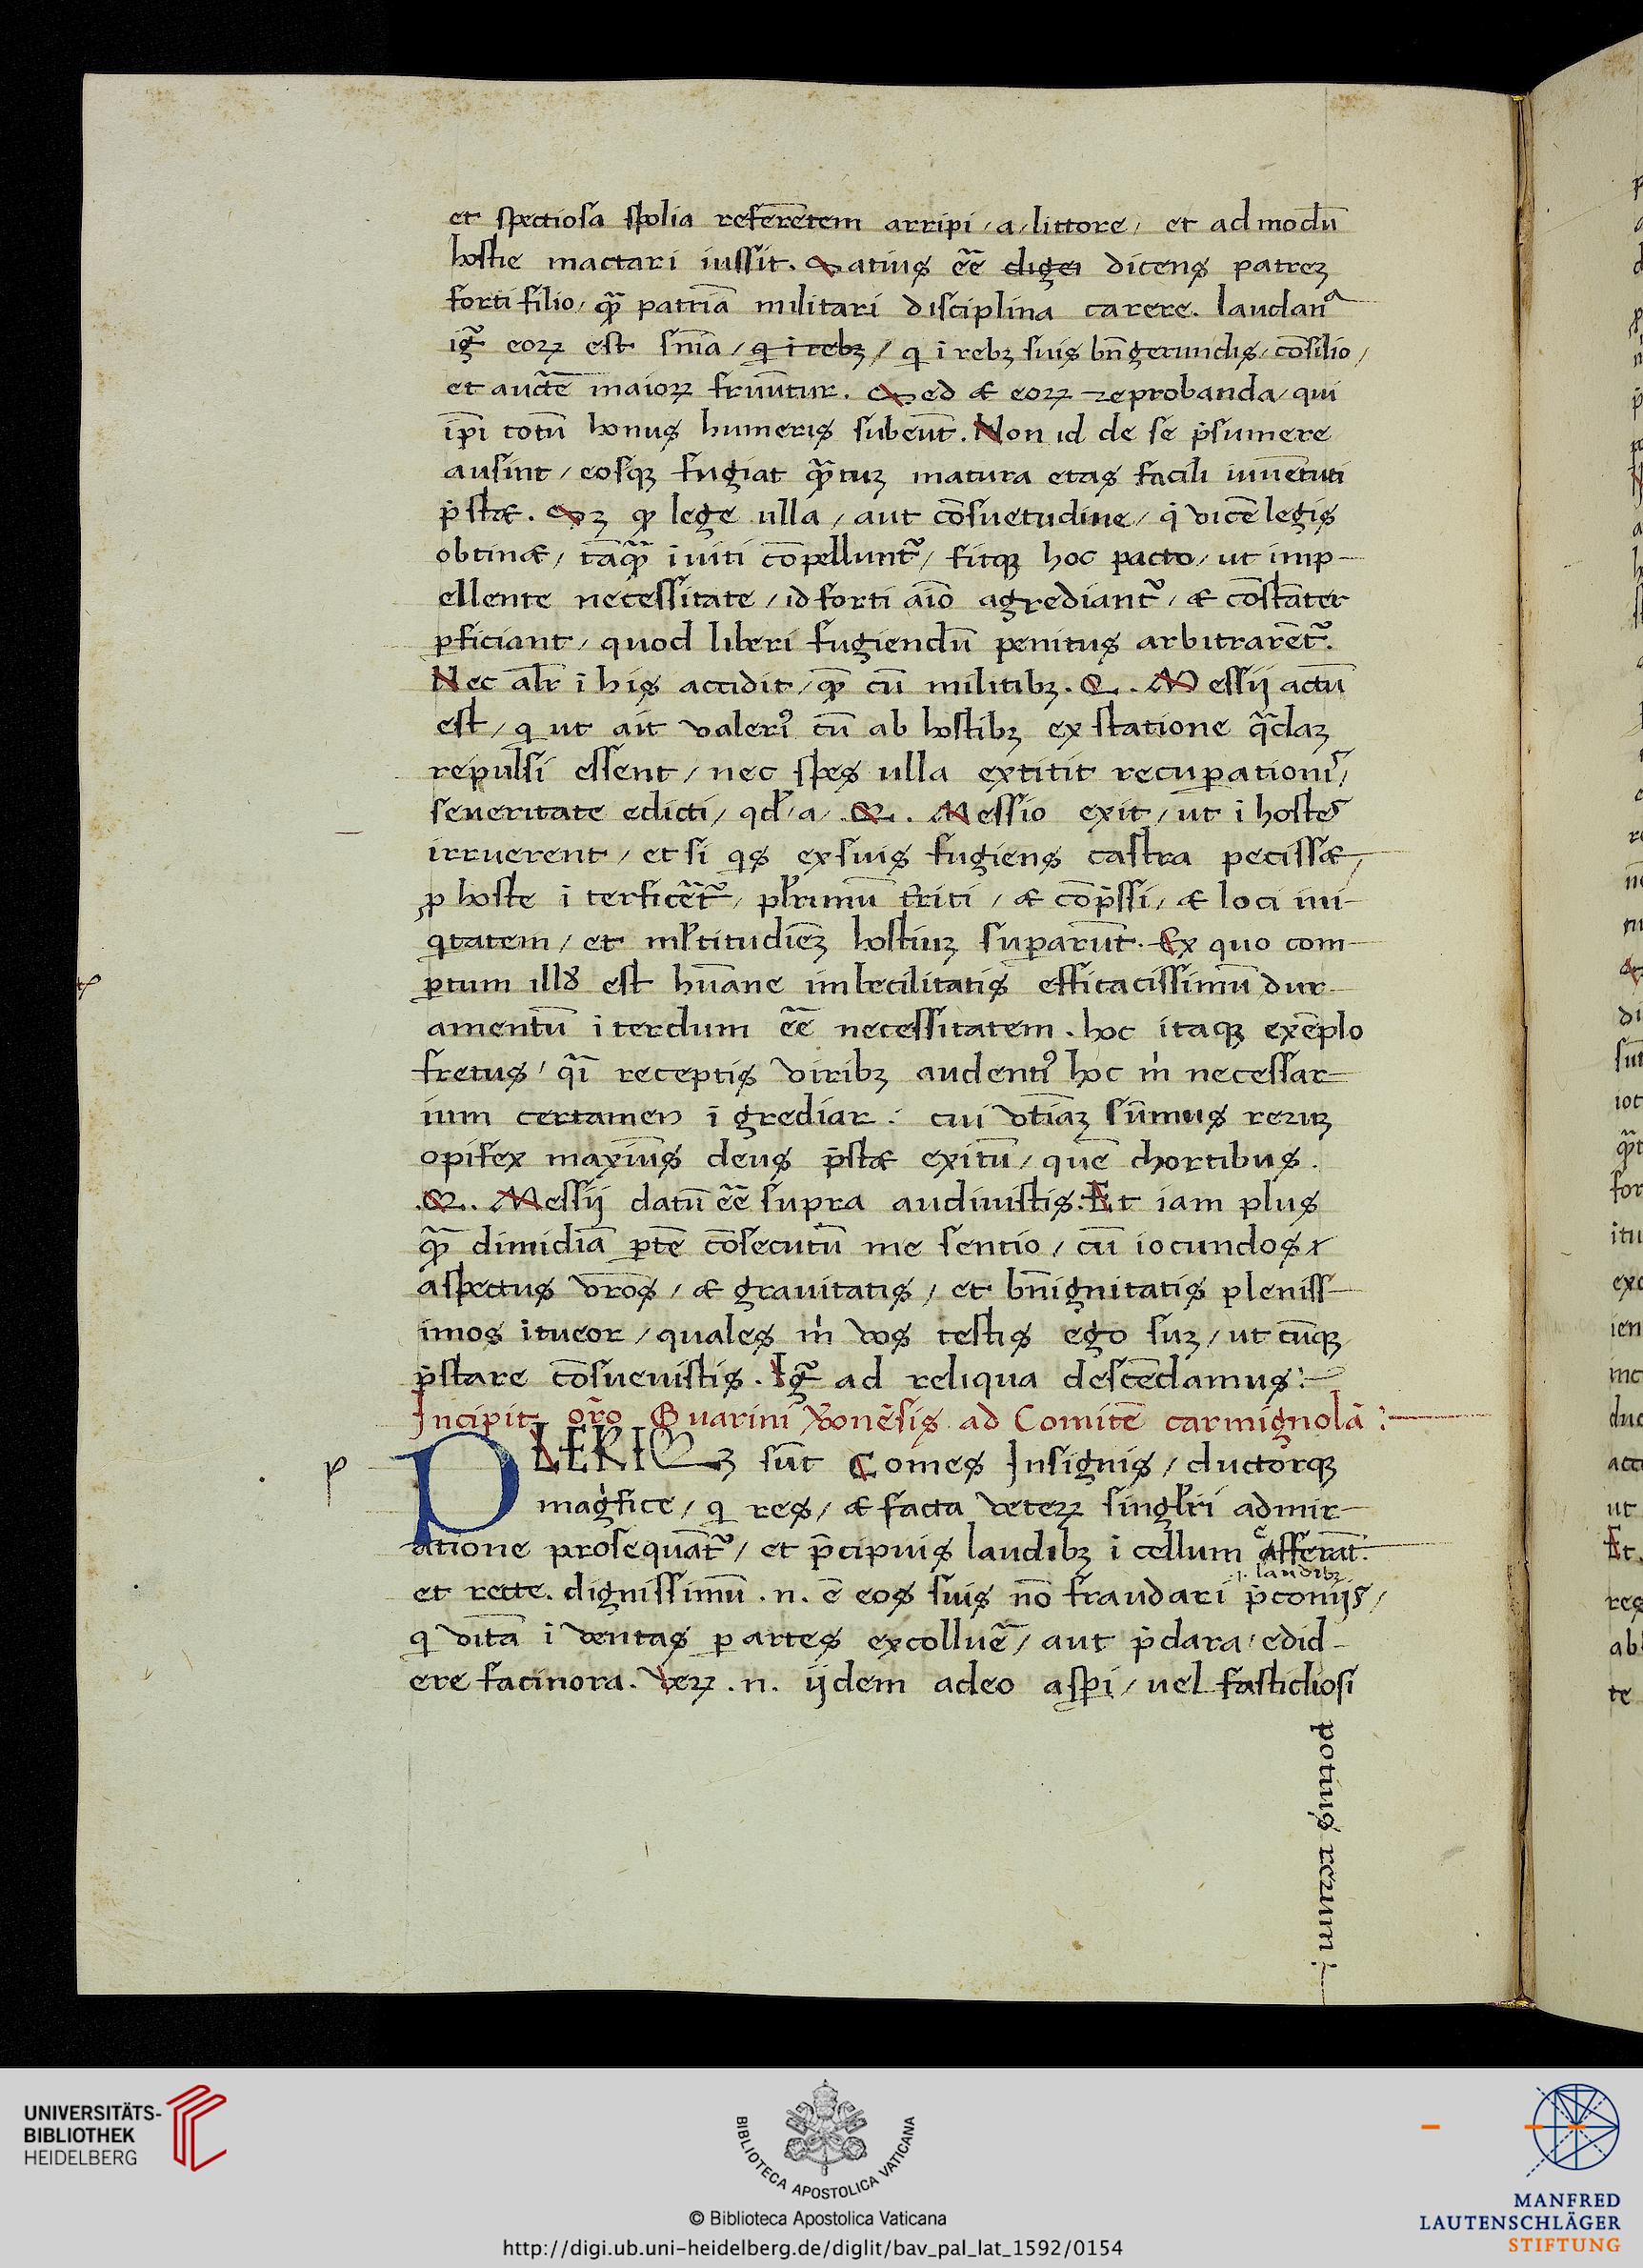 et spectiosa spolia referētem arripi / a / littore / et ad modū
hostie mactari iussit. Satius eē̄ diḡei dicens patreꝫ
forti filio / qꝫ̄ patriā militari disciplina carere. laudanᵃ
ig̃ eoꝝ est sn̄ia / q i rebꝫ / q ī rebꝫ suis bn̄ gerundis / cōsilio /
et auctē maioꝝ fruūtur. Sed & eoꝝ reprobanda / qui
ip̄i totū honus humeris subeūt. Non id de se p̄sumere
ausint / eosqꝫ fugiat qꝫ̄tuꝫ matura etas facili iuuētuti
p̄st&. Sꝫ qꝫ lege ulla / aut cōsuetudine / q̇ vicē legis
obtin& / tāqꝫ̄ īuiti cōpellunt᷑ / fitqꝫ hoc pacto / ut imp-
ellente necessitate / id forti aīo agrediant᷑ / & cōstāter
ꝑficiant / quod liberi fugiendū penitus arbitrarēt᷑.
Nec al̄r ī his accidit / qꝫ̄ cū militibꝫ. Q. Messij actū
est / q ut ait valeriꝰ cū ab hostibꝫ ex statione q̄daꝫ
repulsi essent / nec spes ulla extitit recuꝑationis /
seueritate edicti / qd̓ / a / .Q. Messio exit / ut ī hostes
irruerent / et si qs ex suis fugiens castra peciss& /
ꝓ hoste ī terficēt᷑ / pl̓rimū triti / & cōp̄ssi / & loci ini-
qtatem / et ml̓titudiēꝫ hostiuꝫ suꝑarūt. Ex quo com-
ꝑtum illḋ est hūane imbecilitatis efficacissimū dur-
amentū īterdum eē̄ necessitatem. hoc itaqꝫ exēplo
fretus / q̄i receptis viribꝫ audentiꝰ hoc m̍ necessar-
ium certamen īgrediar: cui vtīaꝫ sūmus reruꝫ
opifex maxīus deus p̄st& exitū / quē chortibus.
.Q. Messij datū eē̄ supra audiuistis. Et iam plus
qꝫ̄ dimidiā ꝑtē cōsecutū me sentio / cū iocundos
aspectus vr̄os / & grauitatis / et bn̄ignitatis pleniss-
imos ītueor / quales m̍ vos testis ego suꝫ / ut cūqꝫ
p̄stare cōsueuistis. Ig̃ ad reliqua descēdamus:
Incipit or̄o Guarini v̄onēsis ad Comitē carmignolā:
p
PLERIQꝫ sūt Comes Insignis / ductorqꝫ
mag̍fice / q res / & facta veteꝝ singl̓ri admir-
atione prosequāt᷑ / et p̄cipuis laudibꝫ ī cellum efferāt.
.i. laudibꝫ
et recte. dignissimū .n. ē eos suis nō fraudari p̄conijs /
q vitā ī ventas ꝑ artes excolluē̄ / aut p̄clara / edid-
ere facinora. Veꝝ .n. ijdem adeo asꝑi / uel fastidiosi
potius rerum:
UNIVERSITÄTS-
BIBLIOTHEK
HEIDELBERG
BIBLIOTECA APOSTOLICA VATICANA
© Biblioteca Apostolica Vaticana
http://digi.ub.uni-heidelberg.de/diglit/bav_pal_lat_1592/0154
MANFRED
LAUTENSCHLÄGER
STIFTUNG